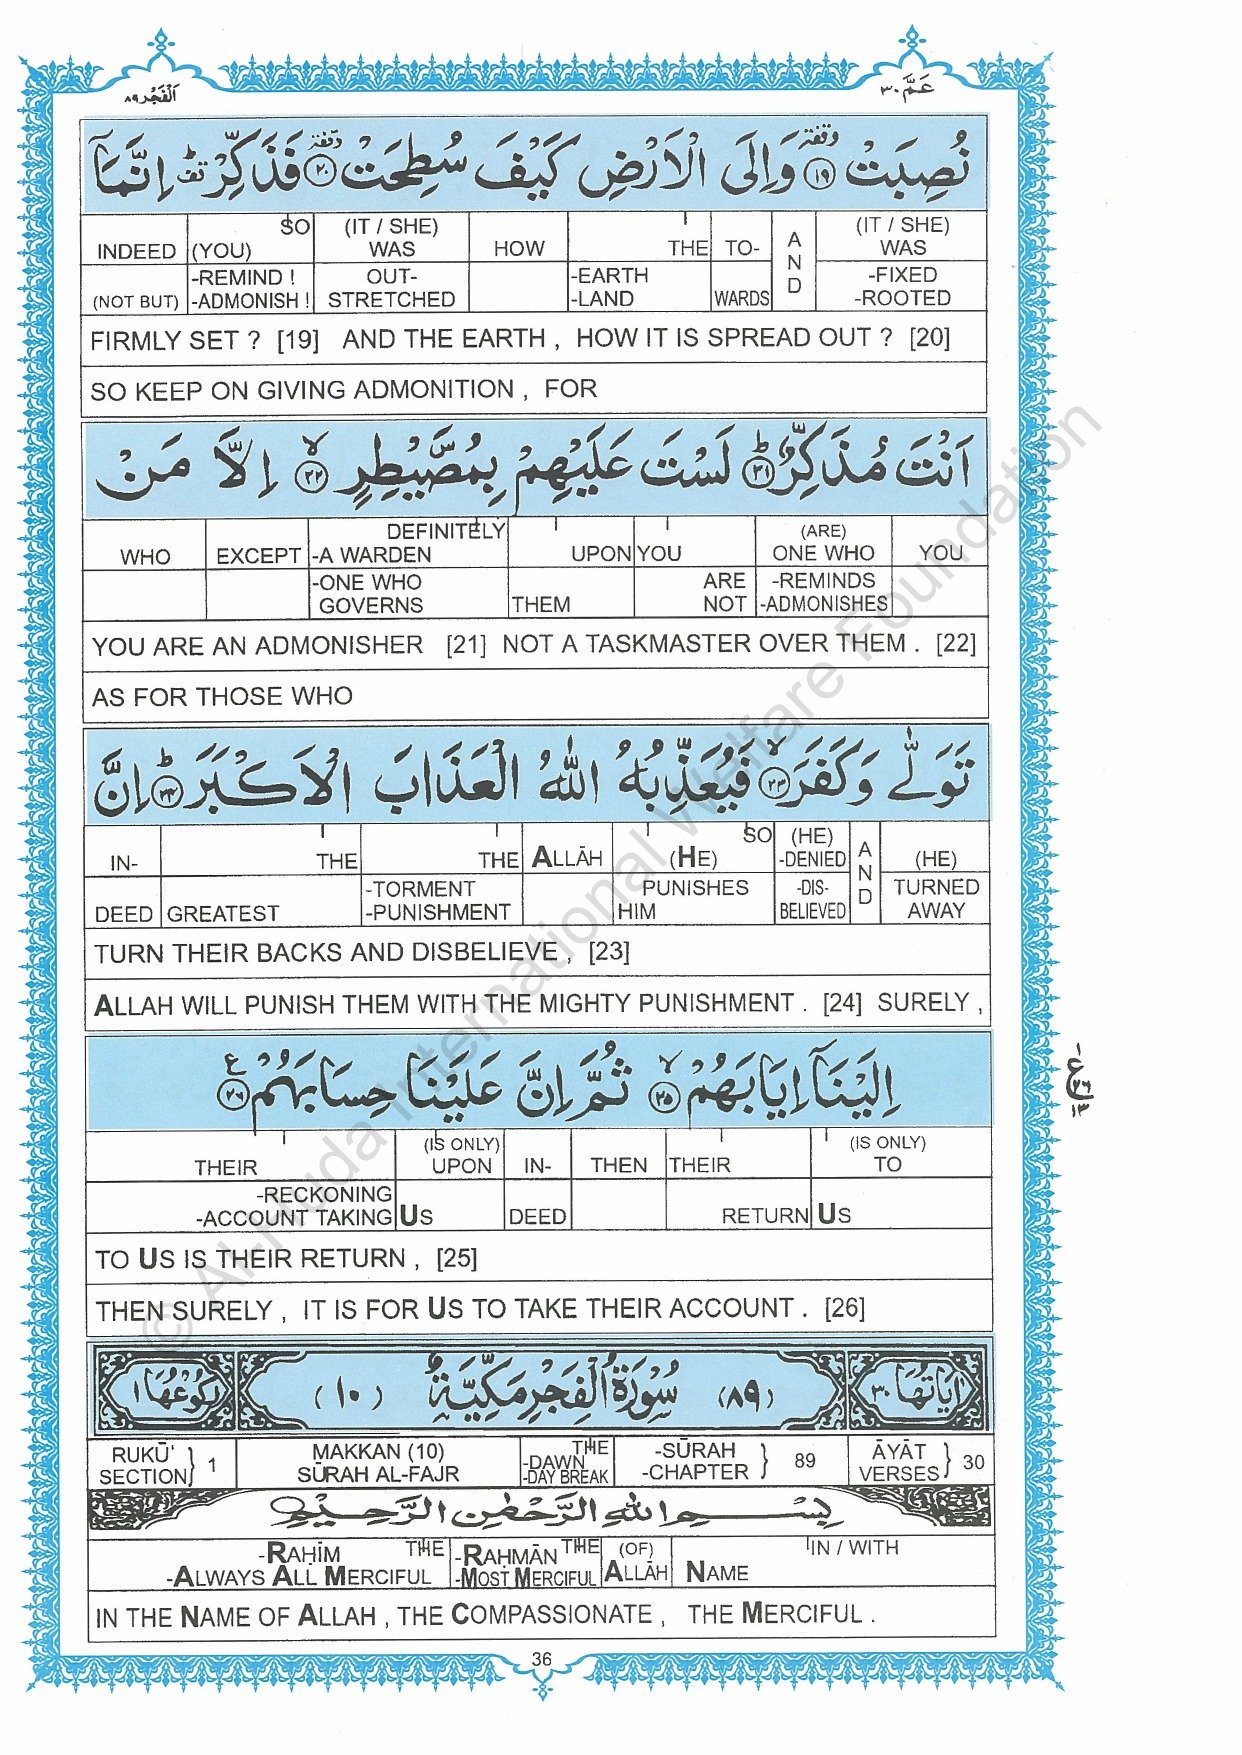 اَلْفَجْر ٨٩
عَمَّ ٣٠
نُصِبَتْ ﴿١٩﴾ وقفة وَاِلَى الْاَرْضِ كَيْفَ سُطِحَتْ ﴿٢٠﴾ وقفة فَذَكِّرْ قف اِنَّمَاۤ
INDEED SO (YOU) (IT / SHE) WAS HOW THE TO- AND (IT / SHE) WAS
(NOT BUT) -REMIND ! -ADMONISH ! OUT-STRETCHED -EARTH -LAND WARDS -FIXED -ROOTED
FIRMLY SET ? [19] AND THE EARTH , HOW IT IS SPREAD OUT ? [20]
SO KEEP ON GIVING ADMONITION , FOR
اَنْتَ مُذَكِّرٌ ؕ﴿٢١﴾ لَسْتَ عَلَيْهِمْ بِمُصَۜيْطِرٍ ۙ﴿٢٢﴾ اِلَّا مَنْ
WHO EXCEPT DEFINITELY -A WARDEN UPON YOU (ARE) ONE WHO YOU
-ONE WHO GOVERNS THEM ARE NOT -REMINDS -ADMONISHES
YOU ARE AN ADMONISHER [21] NOT A TASKMASTER OVER THEM . [22]
AS FOR THOSE WHO
تَوَلّٰى وَكَفَرَ ۙ﴿٢٣﴾ فَيُعَذِّبُهُ اللّٰهُ الْعَذَابَ الْاَكْبَرَ ؕ﴿٢٤﴾ اِنَّ
IN- THE THE ALLĀH SO (HE) (HE) -DENIED AND (HE)
DEED GREATEST -TORMENT -PUNISHMENT PUNISHES HIM -DIS-BELIEVED TURNED AWAY
TURN THEIR BACKS AND DISBELIEVE , [23]
ALLAH WILL PUNISH THEM WITH THE MIGHTY PUNISHMENT . [24] SURELY ,
اِلَيْنَاۤ اِيَابَهُمْ ۙ﴿٢٥﴾ ثُمَّ اِنَّ عَلَيْنَا حِسَابَهُمْ ﴿٢٦﴾ ع
١
ع
٢٦
١٣
THEIR (IS ONLY) UPON IN- THEN THEIR (IS ONLY) TO
-RECKONING -ACCOUNT TAKING US DEED RETURN US
TO US IS THEIR RETURN , [25]
THEN SURELY , IT IS FOR US TO TAKE THEIR ACCOUNT . [26]
اٰيَاتُهَا ٣٠ (٨٩) سُوْرَةُ الْفَجْرِ مَكِّيَّةٌ (١٠) رُكُوْعُهَا ١
RUKŪ' SECTION } 1 MAKKAN (10) SŪRAH AL-FAJR THE -DAWN -DAY BREAK -SŪRAH -CHAPTER } 89 ĀYĀT VERSES } 30
بِسْمِ اللّٰهِ الرَّحْمٰنِ الرَّحِيْمِ
-RAḤĪM THE -RAḤMĀN THE (OF) IN / WITH
-ALWAYS ALL MERCIFUL -MOST MERCIFUL ALLĀH NAME
IN THE NAME OF ALLAH , THE COMPASSIONATE , THE MERCIFUL .
36
© Al-Huda International Welfare Foundation